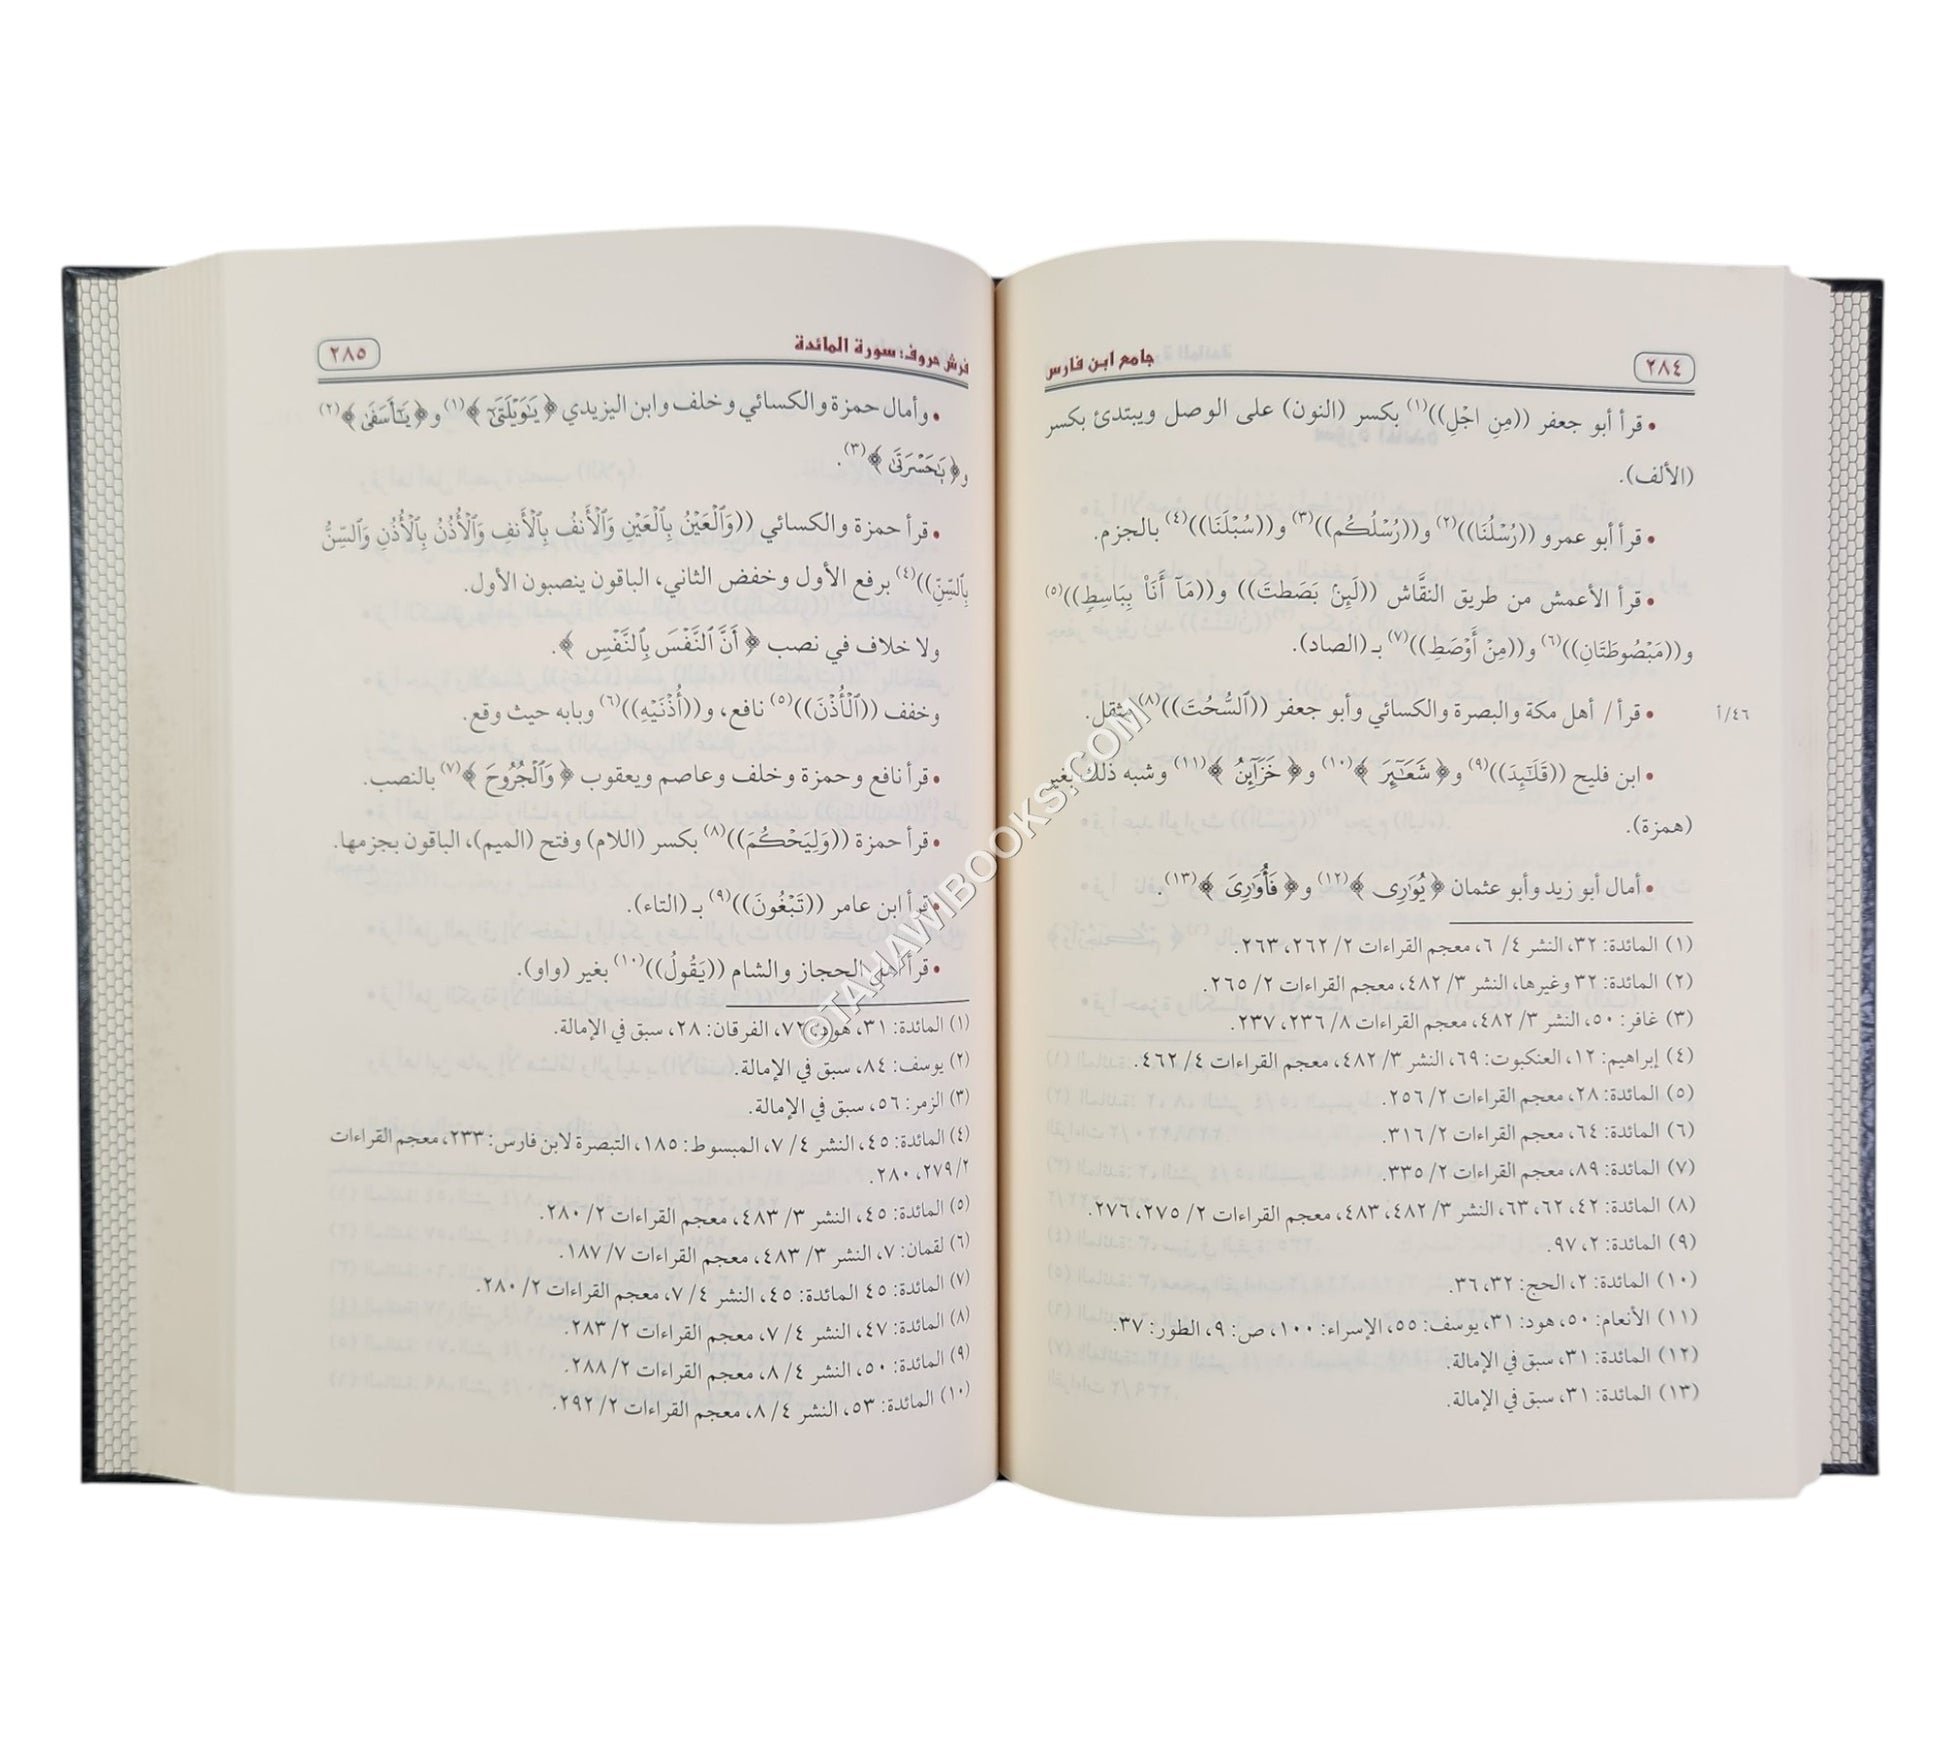 ٢٨٤
جامع ابن فارس
• قرأ أبو جعفر ((مِنِ اجْلِ))(١) بكسر (النون) على الوصل ويبتدئ بكسر
(الألف).
• قرأ أبو عمرو ((رُسْلُنَا))(٢) و((رُسْلُكُم))(٣) و((سُبْلَنَا))(٤) بالجزم.
• قرأ الأعمش من طريق النقَّاش ((لَئِنۢ بَصَطتَ)) و((مَآ أَنَا۠ بِبَاسِطٍ))(٥)
و((مَبْصُوطَتَانِ))(٦) و((مِنْ أَوْصَطِ))(٧) بـ (الصاد).
• قرأ / أهل مكة والبصرة والكسائي وأبو جعفر ((ٱلسُّحُتَ))(٨) مثقل.
٤٦/أ
• ابن فليح ((قَلَـٰٓيِدَ))(٩) و﴿ شَعَـٰٓئِرَ ﴾(١٠) و﴿ خَزَآئِنُ ﴾(١١) وشبه ذلك بغير
(همزة).
• أمال أبو زيد وأبو عثمان ﴿ يُوَٰرِى ﴾(١٢) و﴿ فَأُوَٰرِىَ ﴾(١٣).
(١) المائدة: ٣٢، النشر ٤/ ٦، معجم القراءات ٢/ ٢٦٢، ٢٦٣.
(٢) المائدة: ٣٢ وغيرها، النشر ٣/ ٤٨٢، معجم القراءات ٢/ ٢٦٥.
(٣) غافر: ٥٠، النشر ٣/ ٤٨٢، معجم القراءات ٨/ ٢٣٦، ٢٣٧.
(٤) إبراهيم: ١٢، العنكبوت: ٦٩، النشر ٣/ ٤٨٢، معجم القراءات ٤/ ٤٦٢.
(٥) المائدة: ٢٨، معجم القراءات ٢/ ٢٥٦.
(٦) المائدة: ٦٤، معجم القراءات ٢/ ٣١٦.
(٧) المائدة: ٨٩، معجم القراءات ٢/ ٣٣٥.
(٨) المائدة: ٤٢، ٦٢، ٦٣، النشر ٣/ ٤٨٢، ٤٨٣، معجم القراءات ٢/ ٢٧٥، ٢٧٦.
(٩) المائدة: ٢، ٩٧.
(١٠) المائدة: ٢، الحج: ٣٢، ٣٦.
(١١) الأنعام: ٥٠، هود: ٣١، يوسف: ٥٥، الإسراء: ١٠٠، ص: ٩، الطور: ٣٧.
(١٢) المائدة: ٣١، سبق في الإمالة.
(١٣) المائدة: ٣١، سبق في الإمالة.
فرش حروف: سورة المائدة
٢٨٥
• وأمال حمزة والكسائي وخلف وابن اليزيدي ﴿ يَـٰوَيْلَتَىٰٓ ﴾(١) و﴿ يَـٰٓأَسَفَىٰ ﴾(٢)
و﴿ يَـٰحَسْرَتَىٰ ﴾(٣).
• قرأ حمزة والكسائي ((وَٱلْعَيْنُ بِٱلْعَيْنِ وَٱلْأَنفُ بِٱلْأَنفِ وَٱلْأُذُنُ بِٱلْأُذُنِ وَٱلسِّنُّ
بِٱلسِّنِّ))(٤) برفع الأول وخفض الثاني، الباقون ينصبون الأول.
ولا خلاف في نصب ﴿ أَنَّ ٱلنَّفْسَ بِٱلنَّفْسِ ﴾.
وخفف ((ٱلْأُذْنَ))(٥) نافع، و((أُذْنَيْهِ))(٦) وبابه حيث وقع.
• قرأ نافع وحمزة وخلف وعاصم ويعقوب ﴿ وَٱلْجُرُوحَ ﴾(٧) بالنصب.
• قرأ حمزة ((وَلِيَحْكُمَ))(٨) بكسر (اللام) وفتح (الميم)، الباقون بجزمها.
• قرأ ابن عامر ((تَبْغُونَ))(٩) بـ (التاء).
• قرأ أهل الحجاز والشام ((يَقُولُ))(١٠) بغير (واو).
(١) المائدة: ٣١، هود: ٧٢، الفرقان: ٢٨، سبق في الإمالة.
(٢) يوسف: ٨٤، سبق في الإمالة.
(٣) الزمر: ٥٦، سبق في الإمالة.
(٤) المائدة: ٤٥، النشر ٤/ ٧، المبسوط: ١٨٥، التبصرة لابن فارس: ٢٣٣، معجم القراءات
٢/ ٢٧٩، ٢٨٠.
(٥) المائدة: ٤٥، النشر ٣/ ٤٨٣، معجم القراءات ٢/ ٢٨٠.
(٦) لقمان: ٧، النشر ٣/ ٤٨٣، معجم القراءات ٧/ ١٨٧.
(٧) المائدة: ٤٥ المائدة: ٤٥، النشر ٤/ ٧، معجم القراءات ٢/ ٢٨٠.
(٨) المائدة: ٤٧، النشر ٤/ ٧، معجم القراءات ٢/ ٢٨٣.
(٩) المائدة: ٥٠، النشر ٤/ ٨، معجم القراءات ٢/ ٢٨٨.
(١٠) المائدة: ٥٣، النشر ٤/ ٨، معجم القراءات ٢/ ٢٩٢.
©TAHAWIBOOKS.COM